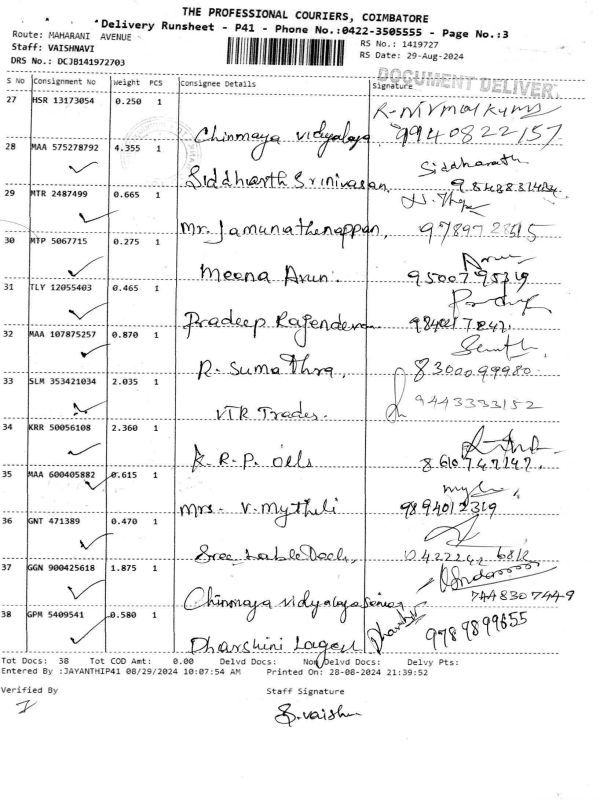 THE PROFESSIONAL COURIERS, COIMBATORE
Delivery Runsheet - P41 - Phone No.:0422-3505555 - Page No.:3
Route: MAHARANI AVENUE
RS No.: 1419727
Staff: VAISHNAVI
RS Date: 29-Aug-2024
DRS No.: DCJB141972703
DOCUMENT DELIVER
S No Consignment No Weight PCS Consignee Details Signature
27 HSR 13173054 0.250 1
Chinmaya vidyalaya 9940822157
28 MAA 575278792 4.355 1 Siddharath
Siddharth Srinivasan
29 MTR 2487499 0.665 1
Mr. Jamunathenappan,
30 MTP 5067715 0.275 1 Arun
Meena Arun. 9500795319
31 TLY 12055403 0.465 1
Pradeep Rajenderan
32 MAA 107875257 0.870 1
R. Sumathra, 8300099980
33 SLM 353421034 2.035 1
VTR Trades. 9443333152
34 KRR 50056108 2.360 1
K. R. P. oils 8610747147.
35 MAA 600405882 0.615 1
Mrs. V. Mythili 9894012319
36 GNT 471389 0.470 1
37 GGN 900425618 1.875 1
Chinmaya vidyalaya Senior 7448307449
38 GPM 5409541 0.580 1
Dharshini 9789899655
Tot Docs: 38 Tot COD Amt: 0.00 Delvd Docs: Non Delvd Docs: Delvy Pts:
Entered By :JAYANTHIP41 08/29/2024 10:07:54 AM Printed On: 28-08-2024 21:39:52
Verified By Staff Signature
S.vaishu